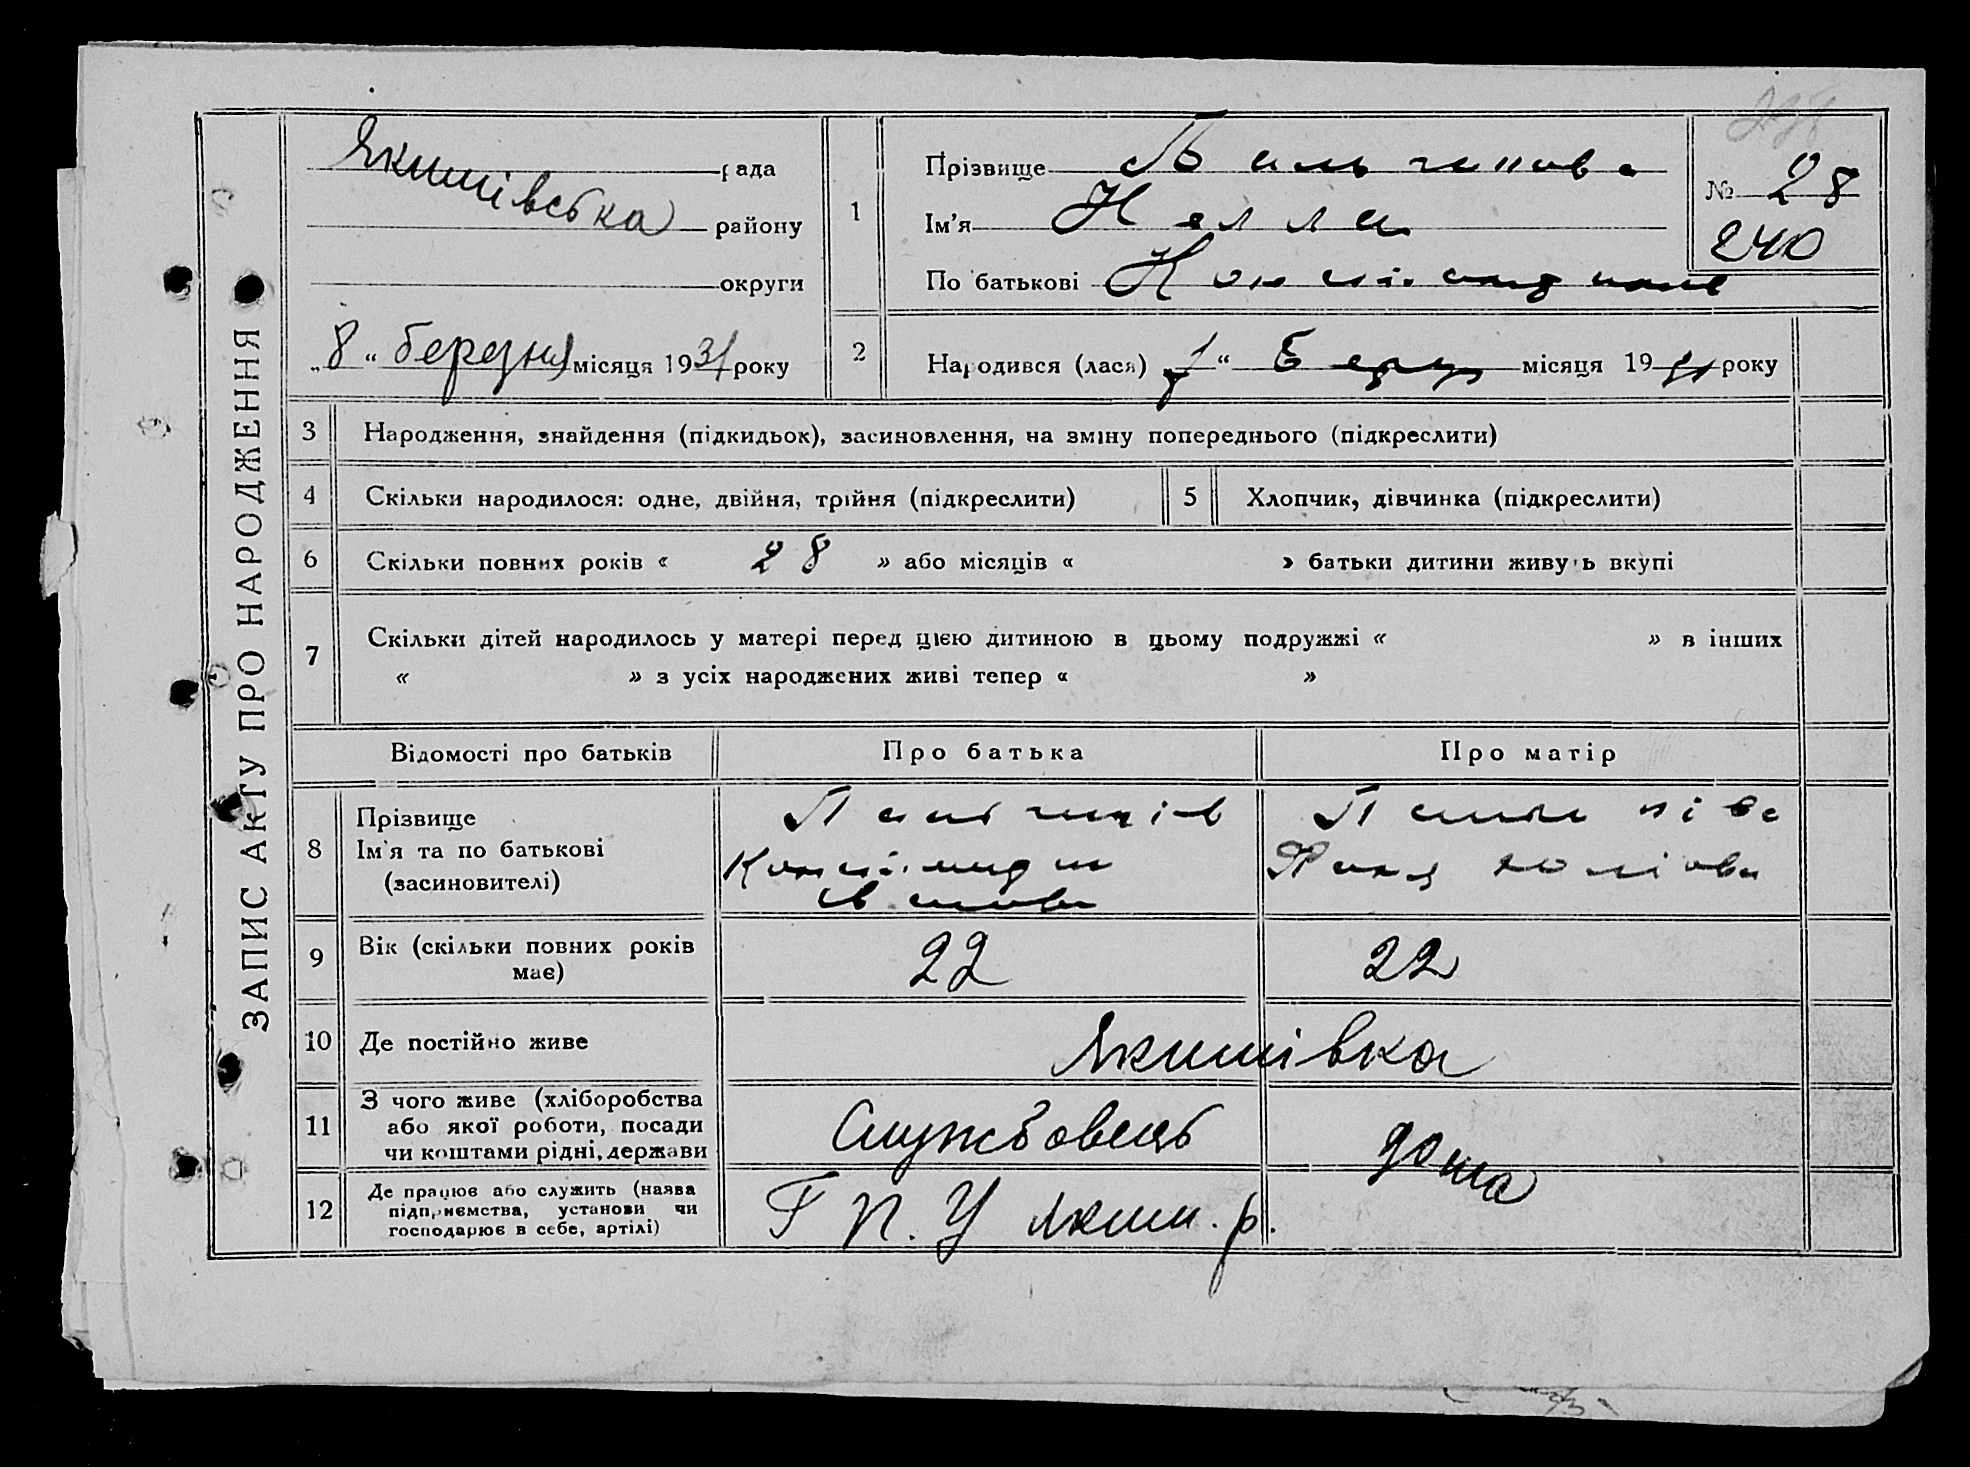 ЗАПИС АКТУ ПРО НАРОДЖЕННЯ
Якимівська рада
району
округи
„8“ березня місяця 1931 року
1
Прізвище
Ім'я Нелля
По батькові
№ 28
240
2
Народився (лася) “ місяця 19 року
3 Народження, знайдення (підкидьок), засиновлення, на зміну попереднього (підкреслити)
4 Скільки народилося: одне, двійня, трійня (підкреслити)
5 Хлопчик, дівчинка (підкреслити)
6 Скільки повних років « 28 » або місяців « » батьки дитини живуть вкупі
7 Скільки дітей народилось у матері перед цією дитиною в цьому подружжі « » в інших
« » з усіх народжених живі тепер « »
Відомості про батьків Про батька Про матір
8
Прізвище
Ім'я та по батькові
(засиновителі)
9
Вік (скільки повних років
має)
22 22
10 Де постійно живе Якимівка
11
З чого живе (хліборобства
або якої роботи, посади
чи коштами рідні, держави
Службовець дома
12
Де працює або служить (назва
підприємства, установи чи
господарює в себе, артілі)
Г П. У Яким. р.